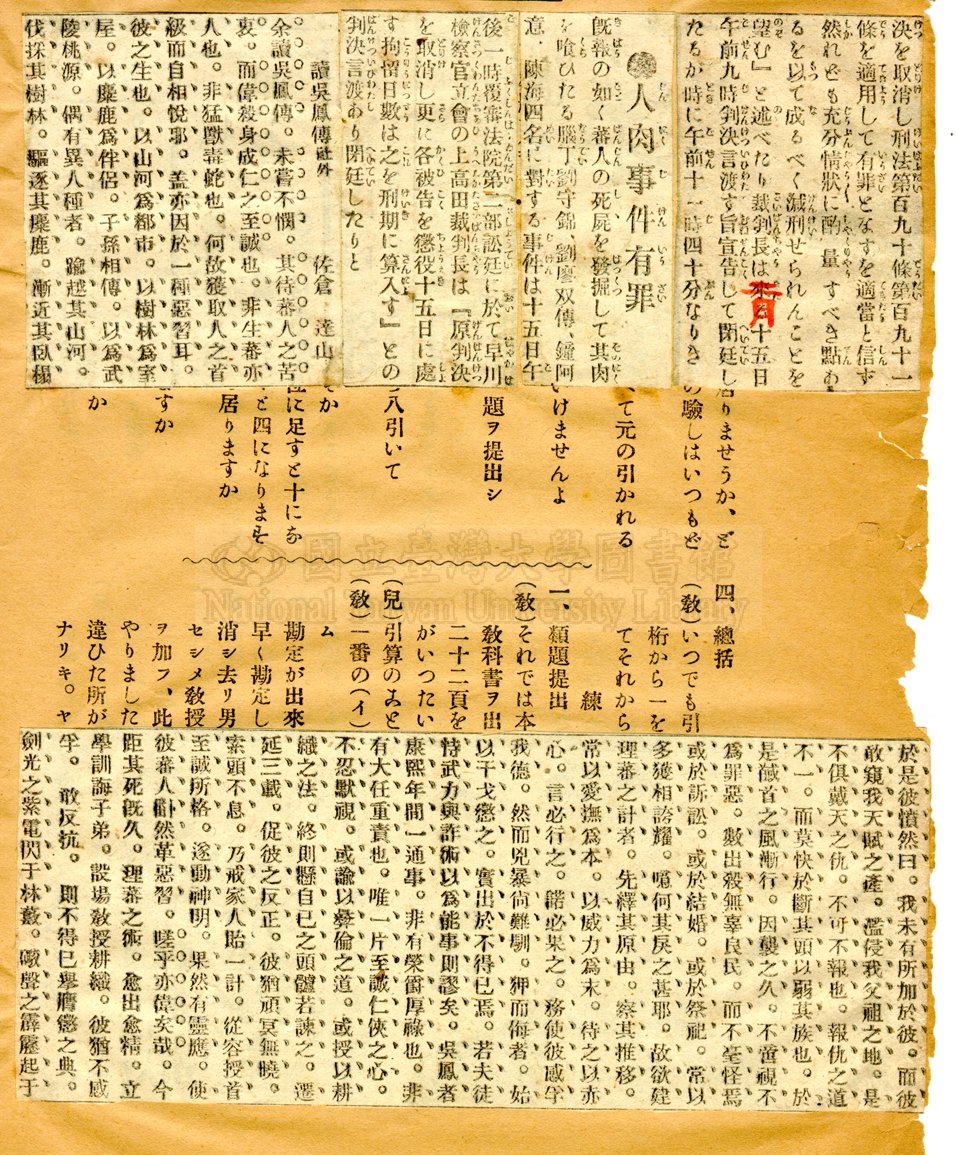 決を取消し刑法第百九十條第百九十一
條を適用して有罪となすを適當と信ず
然れども充分情狀に酌量すべき點あ
るを以て成るべく減刑せられんことを
望む』と述べたり裁判長は來る十五日
午前九時判決言渡す旨宣告して閉廷し
たるが時に午前十一時四十分なりき
人肉事件有罪
既報の如く蕃人の死屍を發掘して其肉
を喰ひたる腦丁劉守錦、劉廖双傳、鐘阿
意、陳海四名に對する事件は十五日午
後一時覆審法院第二部訟廷に於て早川
檢察官立會の上高田裁判長は『原判決
を取消し更に各被告を懲役十五日に處
す拘留日數は之を刑期に算入す』との
判決言渡あり閉廷したりと
讀吳鳳傳 社外 佐倉達山
余讀吳鳳傳。未嘗不憫。其待蕃人之苦
衷。而偉殺身成仁之至誠也。非生蕃亦
人也。非猛獸毒蛇也。何故獲取人之首
級而自相悅耶。盖亦因於一種惡習耳。
彼之生也。以山河爲都市。以樹林爲室
屋。以麋鹿爲伴侶。子孫相傳。以爲武
陵桃源。偶有異人種者。踰越其山河。
伐採其樹林。驅逐其麋鹿。漸近其臥榻
居りませうか、ど
の驗しはいつもど
て元の引かれる
いけませんよ
題ヲ提出シ
八引いて
か
位に足すと十にな
と四になりまず
居りますか
すか
か
國立臺灣大學圖書館
National Taiwan University Library
四、總括
(敎)いつでも引
桁から一を
てそれから
練
一、類題提出
(敎)それでは本
敎科書ヲ出
二十二頁を
がいつたい
(兒)引算のゐと
(敎)一番の(イ)
ム
勘定が出來
早く勘定し
消シ去リ男
セシメ敎授
ヲ加フ、此
やりました
違ひた所が
ナリキ。ヤ
於是彼憤然曰。我未有所加於彼。而彼
敢窺我天賦之產。濫侵我父祖之地。是
不俱戴天之仇。不可不報也。報仇之道
不一。而莫快於斷其頭以弱其族也。於
是馘首之風漸行。因襲之久。不啻視不
爲罪惡。數出殺無辜良民。而不毫怪焉
或於訴訟。或於結婚。或於祭祀。常以
多獲相誇耀。噫何其戾之甚耶。故欲建
理蕃之計者。先繹其原由。察其推移。
常以愛撫爲本。以威力爲末。待之以赤
心。言必行之。諾必果之。務使彼感孚
我德。然而兇暴尙難馴。狎而侮者。始
以干戈懲之。實出於不得已焉。若夫徒
恃武力與詐術以爲能事則謬矣。吳鳳者
康熙年間一通事。非有榮爵厚祿也。非
有大任重責也。唯一片至誠仁俠之心。
不忍默視。或諭以彜倫之道。或授以耕
織之法。終則懸自己之頭髗若諫之。遷
延三載。促彼之反正。彼猶頑冥無曉。
索頭不息。乃戒家人貽一計。從容授首
至誠所格。遂動神明。果然有靈應。使
彼蕃人翻然革惡習。嗟乎亦偉矣哉。今
距其死既久。理蕃之術。愈出愈精。立
學訓誨子弟。設場敎授耕織。彼猶不感
孚。敢反抗。則不得已擧膺懲之典。
劍光之紫電閃于林藪。礮聲之霹靂起于